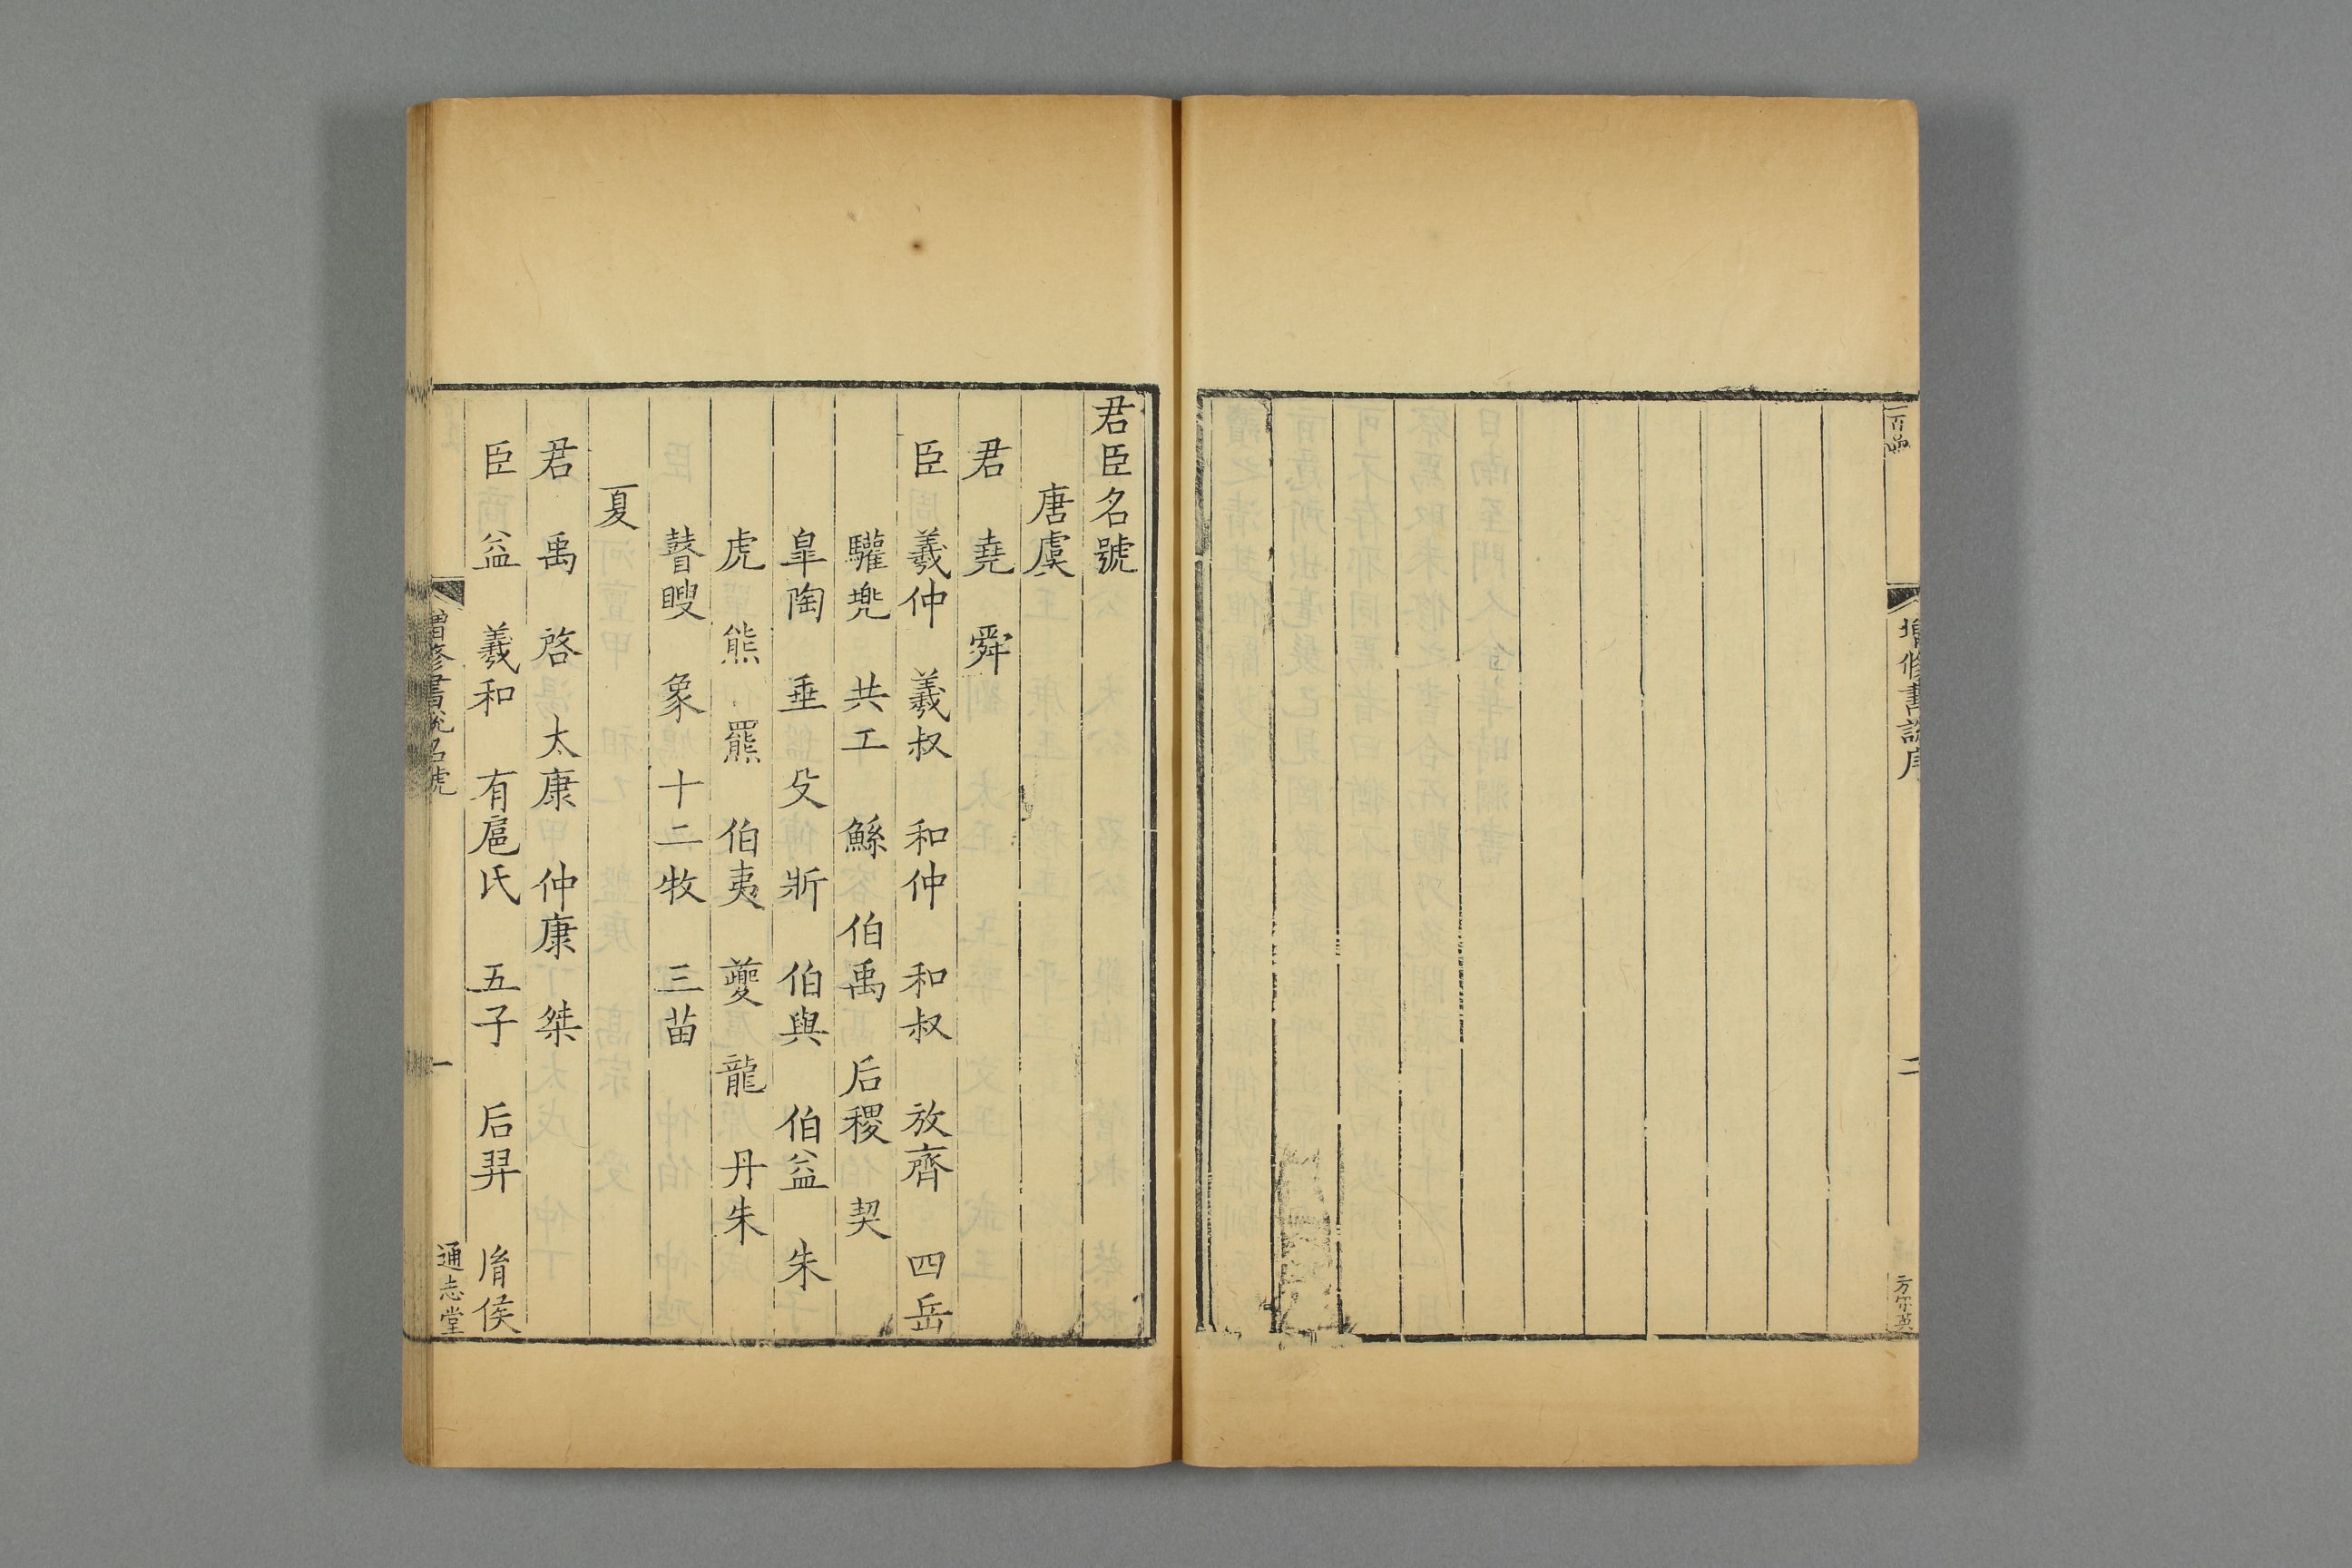 增修書說序
二
君臣名號
唐虞
君 堯 舜
臣 羲仲 羲叔 和仲 和叔 放齊 四岳
驩兠 共工 鯀 伯禹 后稷 契
皐陶 垂 殳 斨 伯與 伯益 朱
虎 熊 羆 伯夷 夔 龍 丹朱
瞽瞍 象 十二牧 三苗
夏
君 禹 啓 太康 仲康 桀
臣 益 羲和 有扈氏 五子 后羿 胤侯
增修書說名號
一
通志堂